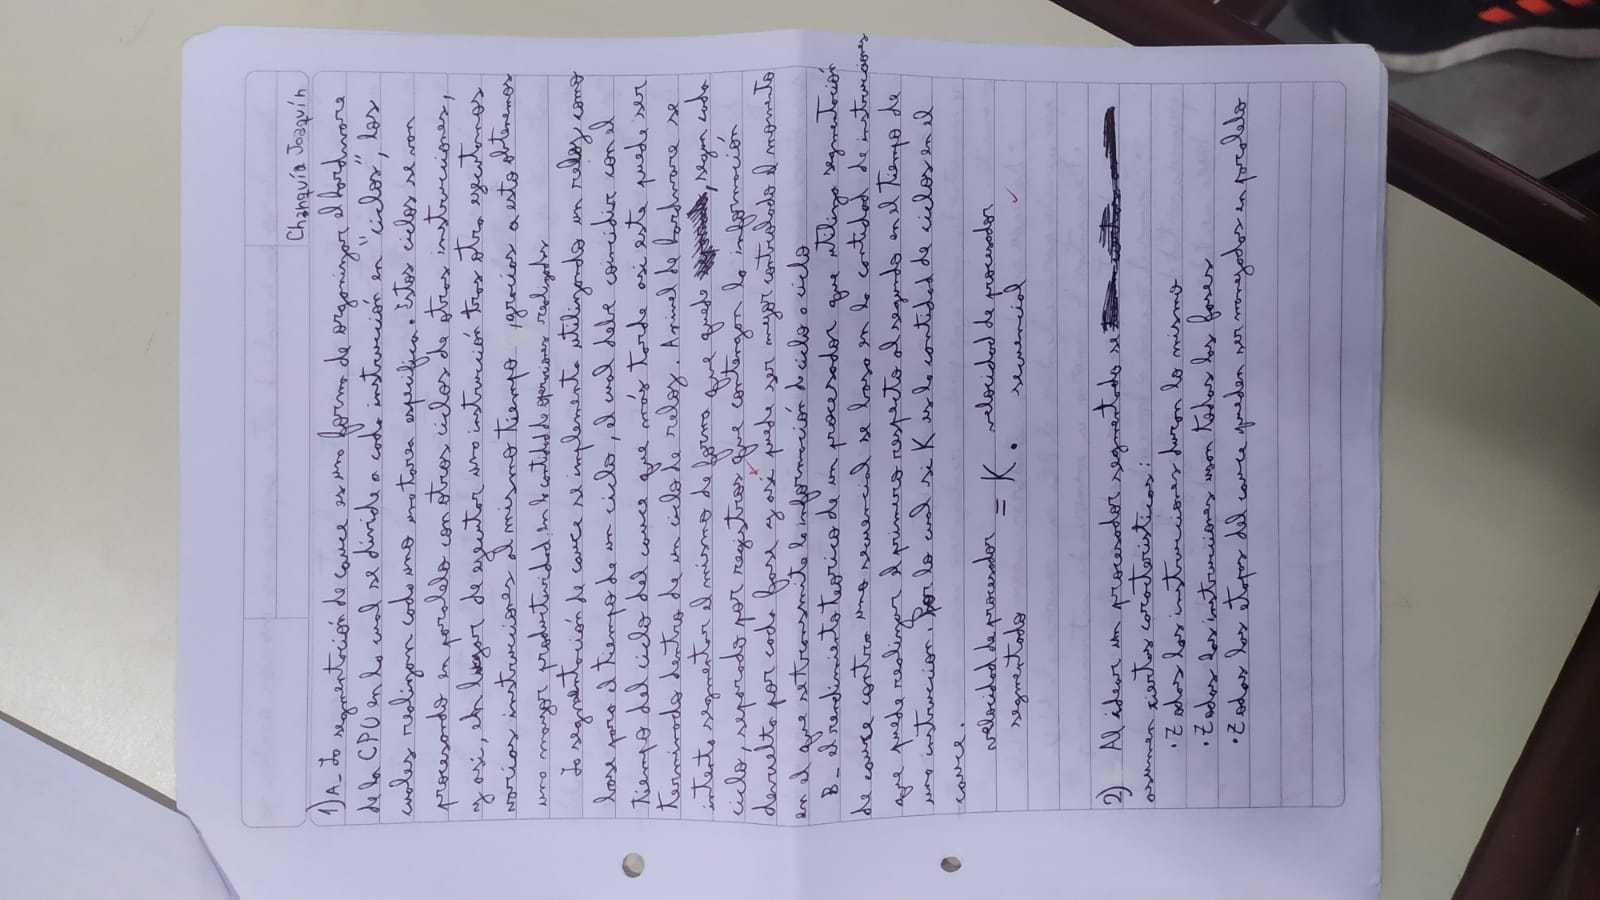 Chanquía Joaquín
1) A- La segmentación de cauce es una forma de organizar el hardware
de la CPU en la cual se divide a cada instrucción en "ciclos", los
cuales realizan cada uno una tarea específica. Estos ciclos se van
procesando en paralelo con otros ciclos de otras instrucciones,
y así, en lugar de ejecutar una instrucción tras otra ejecutamos
varias instrucciones al mismo tiempo, gracias a esto obtenemos
una mayor productividad en la cantidad de operaciones realizadas
La segmentación de cauce se implementa utilizando un reloj como
base para el tiempo de un ciclo, el cual debe coincidir con el
tiempo del ciclo del cauce que más tarde así este puede ser
terminado dentro de un ciclo de reloj. A nivel de hardware se
intenta segmentar el mismo de forma que quede, según cada
ciclo, separado por registros que contengan la información
devuelta por cada fase y así puede ser mejor controlado el momento
en el que se transmite la información de ciclo a ciclo
B- el rendimiento teorico de un procesador que utiliza segmentación
de cauce contra uno secuencial se basa en la cantidad de instrucciones
que puede realizar el primero respecto al segundo en el tiempo de
una instruccion, por lo cual si K es la cantidad de ciclos en el
cauce.
velocidad de procesador = K . velocidad de procesador
segmentado secuencial
2) Al idear un procesador segmentado se
asumen ciertas caracteristicas:
• Todas las instrucciones duran lo mismo
• Todas las instrucciones usan todas las fases
• Todas las etapas del cauce pueden ser manejadas en paralelo